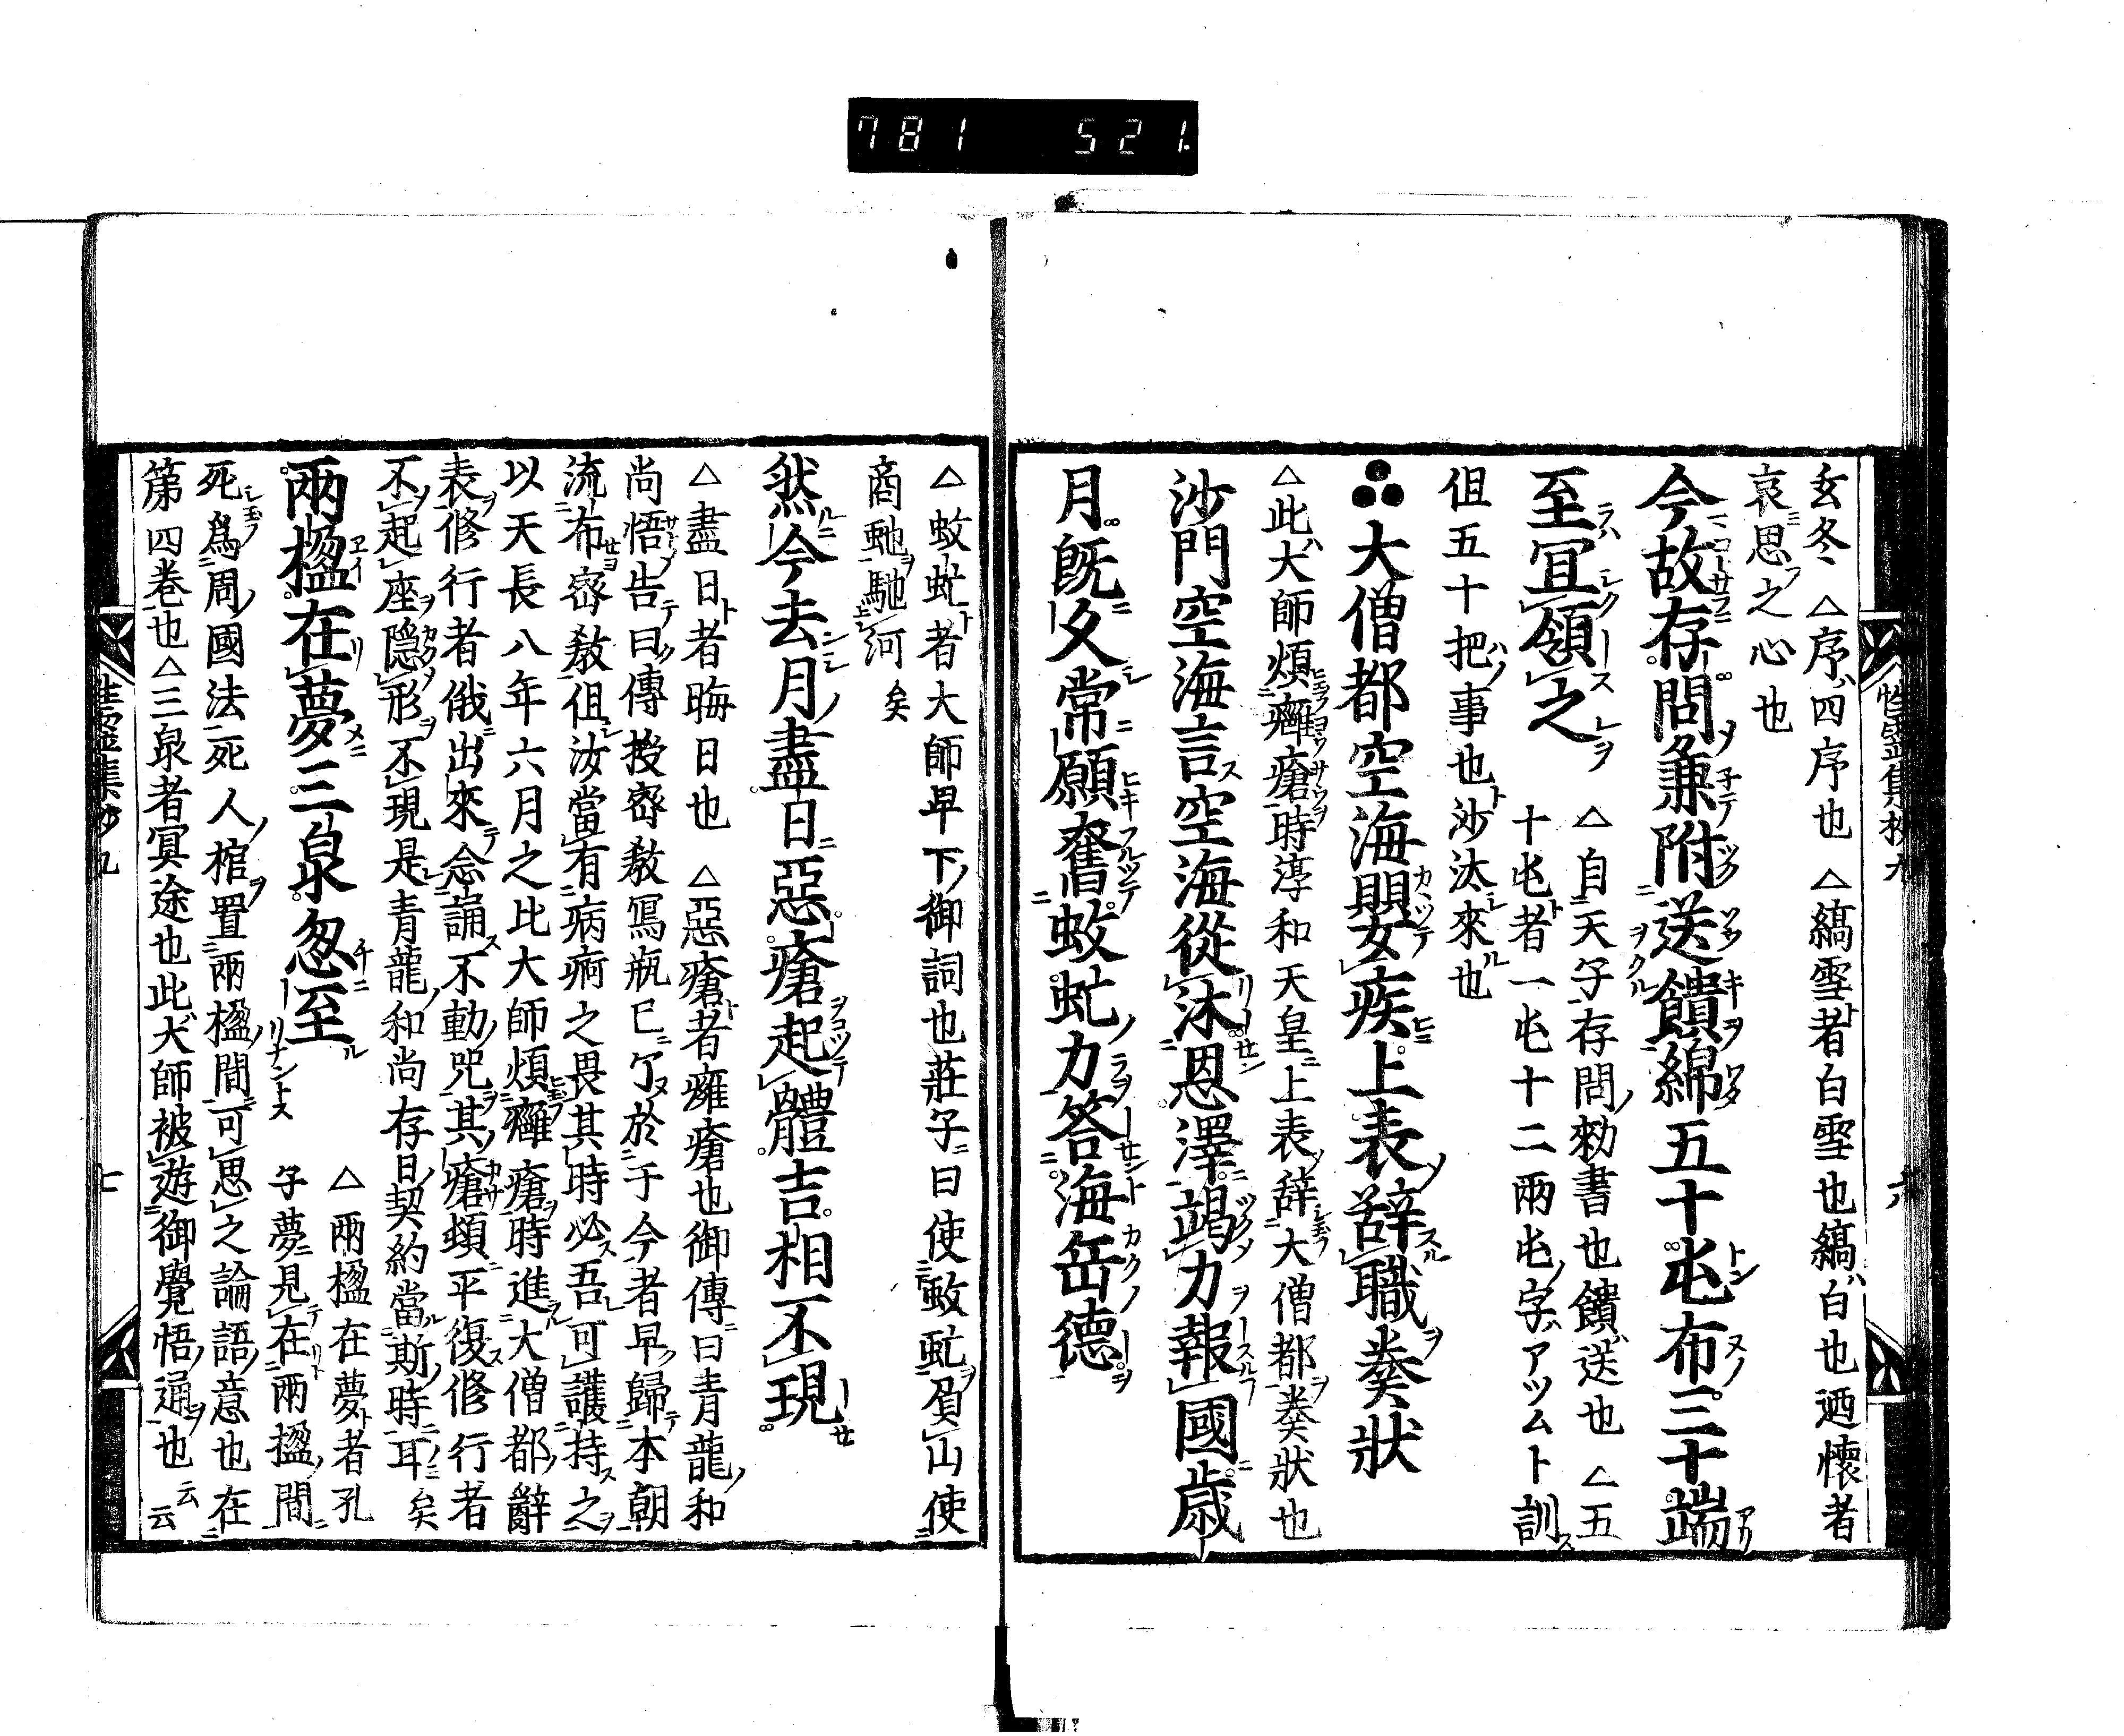 781 521.
玄冬△序四序也△縞雪者白雪也縞白也迺懷者
哀思之心也
今故存問兼附送饋綿五十屯布三十端
至宜領之
△自天子存問勅書也饋送也△五
十屯者一屯十二兩屯字アツムト訓
但五十把事也沙汰來也
大僧都空海嬰疾上表辭職奏狀
△此大師煩癰瘡時淳和天皇上表辞大僧都奏狀也
沙門空海言空海從沐恩澤竭力報國歲
月既久常願奮蚊虻力答海岳德
△蚊虻者大師卑下御詞也莊子曰使蚊虻負山使
商虵馳河矣
然今去月盡日惡瘡起體吉相不現
△盡日者晦日也△惡瘡者癰瘡也御傳曰青龍和
尚悟告曰傳授密教寫瓶已了於于今者早歸本朝
流布密教但汝當有病痾之畏其時必吾可護持之
以天長八年六月之比大師煩癰瘡時進大僧都辭
表修行者俄出來念誦不動咒其瘡頓平復修行者
不起座隱形不現是青龍和尚存日契約當斯時耳矣
兩楹在夢三泉忽至
△兩楹在夢者孔
子夢見在兩楹間
死爲周國法死人棺置兩楹間可思之論語意也在
第四卷也△三泉者冥途也此大師被遊御覺悟通也云云
性靈集抄九
六
七